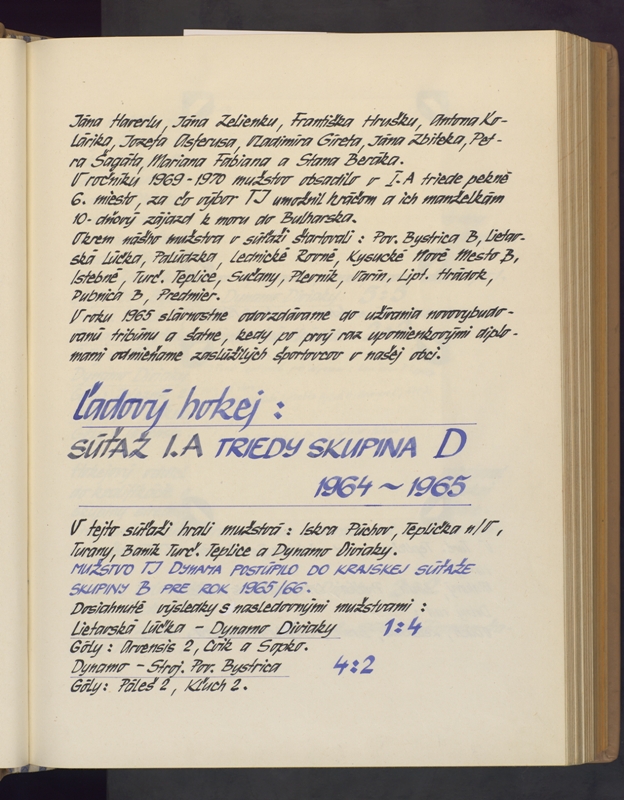 Jána Haverlu, Jána Zelienku, Františka Hrušku, Antona Ko-
lárika, Jozefa Osferusa, Vladimíra Gireta, Jána Zbiteka, Pet-
ra Šagáta, Mariana Fabiana a Stana Beráka.
V ročníku 1969-1970 mužstvo obsadilo v I.A triede pekné
6. miesto, za čo výbor TJ umožnil hráčom a ich manželkám
10-dňový zájazd k moru do Bulharska.
Okrem nášho mužstva v súťaži štartovali : Pov. Bystrica B, Lietav-
ská Lúčka, Palúdzka, Lednické Rovné, Kysucké Nové Mesto B,
Istebné, Turč. Teplice, Sučany, Plevník, Varín, Lipt. Hrádok,
Dubnica B, Predmier.
V roku 1965 slávnostne odovzdávame do užívania novovybudo-
vanú tribúnu a šatne, kedy po prvý raz upomienkovými diplo-
mami odmieňame zaslúžilých športovcov v našej obci.
Ľadový hokej :
SÚŤAŽ I.A TRIEDY SKUPINA D
1964 ~ 1965
V tejto súťaži hrali mužstvá : Iskra Púchov, Teplička n/V,
Turany, Baník Turč. Teplice a Dynamo Diviaky.
MUŽSTVO TJ DYNAMA POSTÚPILO DO KRAJSKEJ SÚŤAŽE
SKUPINY B PRE ROK 1965/66.
Dosiahnuté výsledky s nasledovnými mužstvami :
Lietavská Lúčka - Dynamo Diviaky 1:4
Góly : Arvensis 2, Cvik a Sopko.
Dynamo - Stroj. Pov. Bystrica 4:2
Góly : Páleš 2, Kľuch 2.